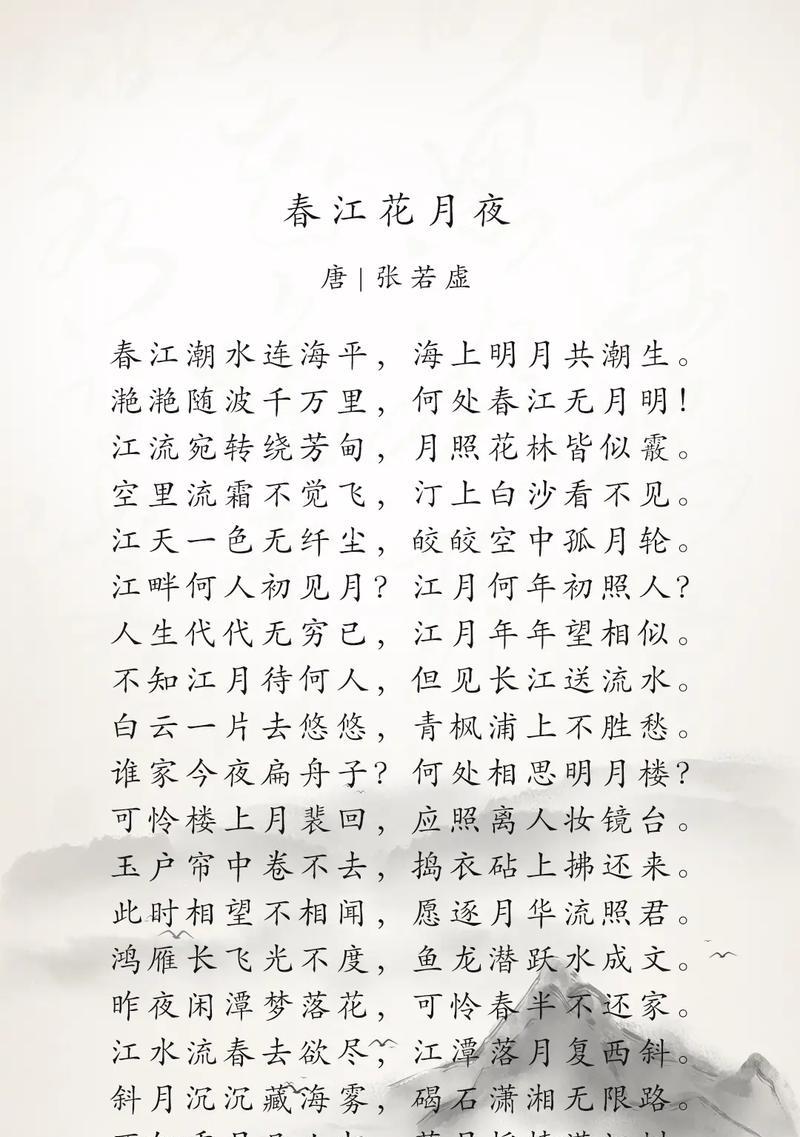 春江花月夜
唐|张若虚
春江潮水连海平，海上明月共潮生。
滟滟随波千万里，何处春江无月明！
江流宛转绕芳甸，月照花林皆似霰。
空里流霜不觉飞，汀上白沙看不见。
江天一色无纤尘，皎皎空中孤月轮。
江畔何人初见月？江月何年初照人？
人生代代无穷已，江月年年望相似。
不知江月待何人，但见长江送流水。
白云一片去悠悠，青枫浦上不胜愁。
谁家今夜扁舟子？何处相思明月楼？
可怜楼上月裴回，应照离人妆镜台。
玉户帘中卷不去，捣衣砧上拂还来。
此时相望不相闻，愿逐月华流照君。
鸿雁长飞光不度，鱼龙潜跃水成文。
昨夜闲潭梦落花，可怜春半不还家。
江水流春去欲尽，江潭落月复西斜。
斜月沉沉藏海雾，碣石潇湘无限路。